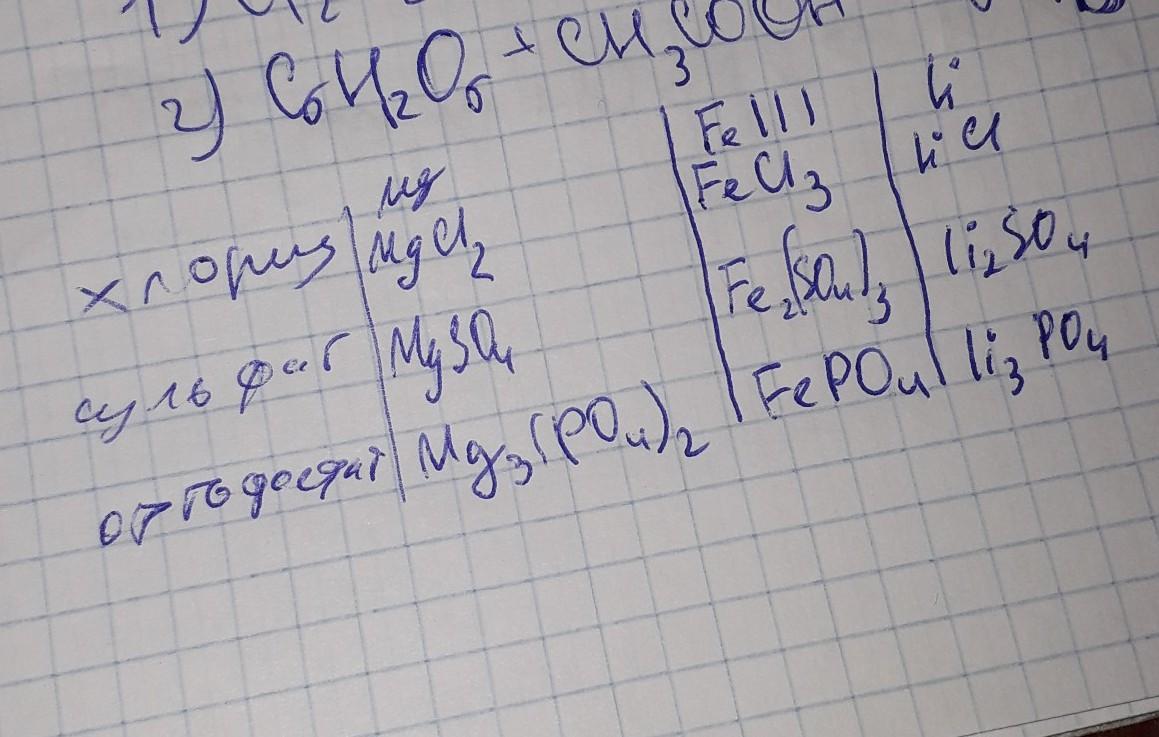 2) C6H2O6 + CH3COOH
Mg | Fe III | Li
хлорид | MgCl2 | FeCl3 | LiCl
сульфат | MgSO4 | Fe2(SO4)3 | Li2SO4
ортофосфат | Mg3(PO4)2 | FePO4 | Li3PO4